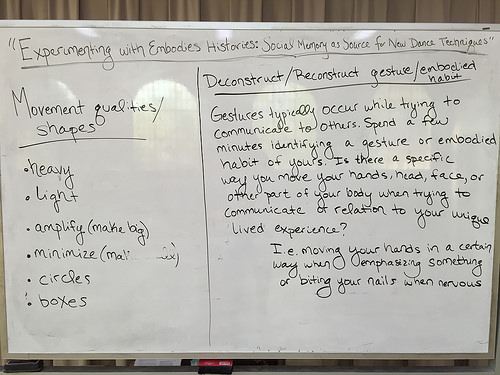 "Experimenting with Embodies Histories: Social Memory as Source for New Dance Techniques"
Movement qualities/
shapes
• heavy
• light
• amplify (make big)
• minimize (ma
• circles
• boxes
Deconstruct/Reconstruct gesture/embodied
habit
Gestures typically occur while trying to
communicate to others. Spend a few
minutes identifying a gesture or embodied
habit of yours. Is there a specific
way you move your hands, head, face, or
other part of your body when trying to
communicate or relation to your unique
lived experience?
I.e. moving your hands in a certain
way when emphasizing something
or biting your nails when nervous